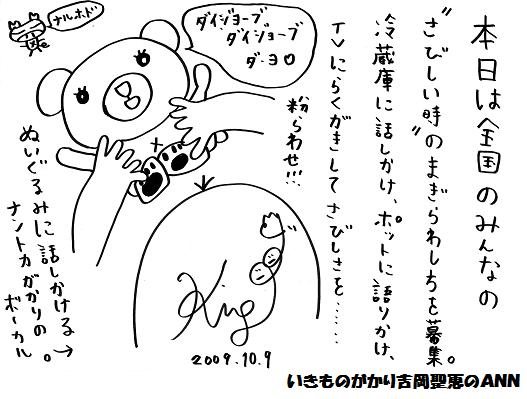 本日は全国のみんなの
"さびしい時"のまぎらわしちを募集。
冷蔵庫に話しかけ、ポットに語りかけ、
TVにらくがきしてさびしさを……
粉らわせ!!!
ダイジョーブ
ダイショーブ
ダーヨ♡
ナルホド
ぬいぐるみに話しかける→
ナントカがかりの
ボーカル。
King
2009.10.9
いきものがかり吉岡聖恵のANN